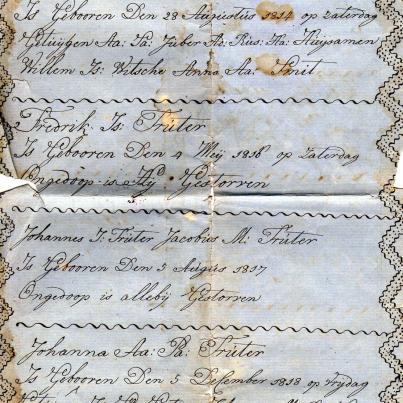 Is Gebooren Den 28 Augustus 1814 op Zaterdag
Getuijgen Aa: Pa: Juber Ao: Rus: Ha: Huijsamen
Willem Is: Witsche Anna Aa: Smit
Fredrik Is: Truter
Is Gebooren Den 4 Meij 1816 op Zaterdag
Ongedoop is Hy Gestorren
Johannes I: Truter Jacobus M: Truter
Is Gebooren Den 5 Augus 1817
Ongedoop is alleby Gestorren
Johanna Aa: Pa: Truter
Is Gebooren Den 5 Desember 1818 op Vrydag